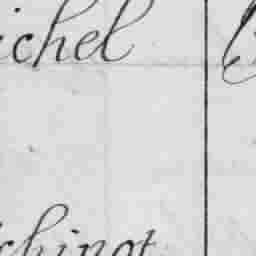 ichel
chinot